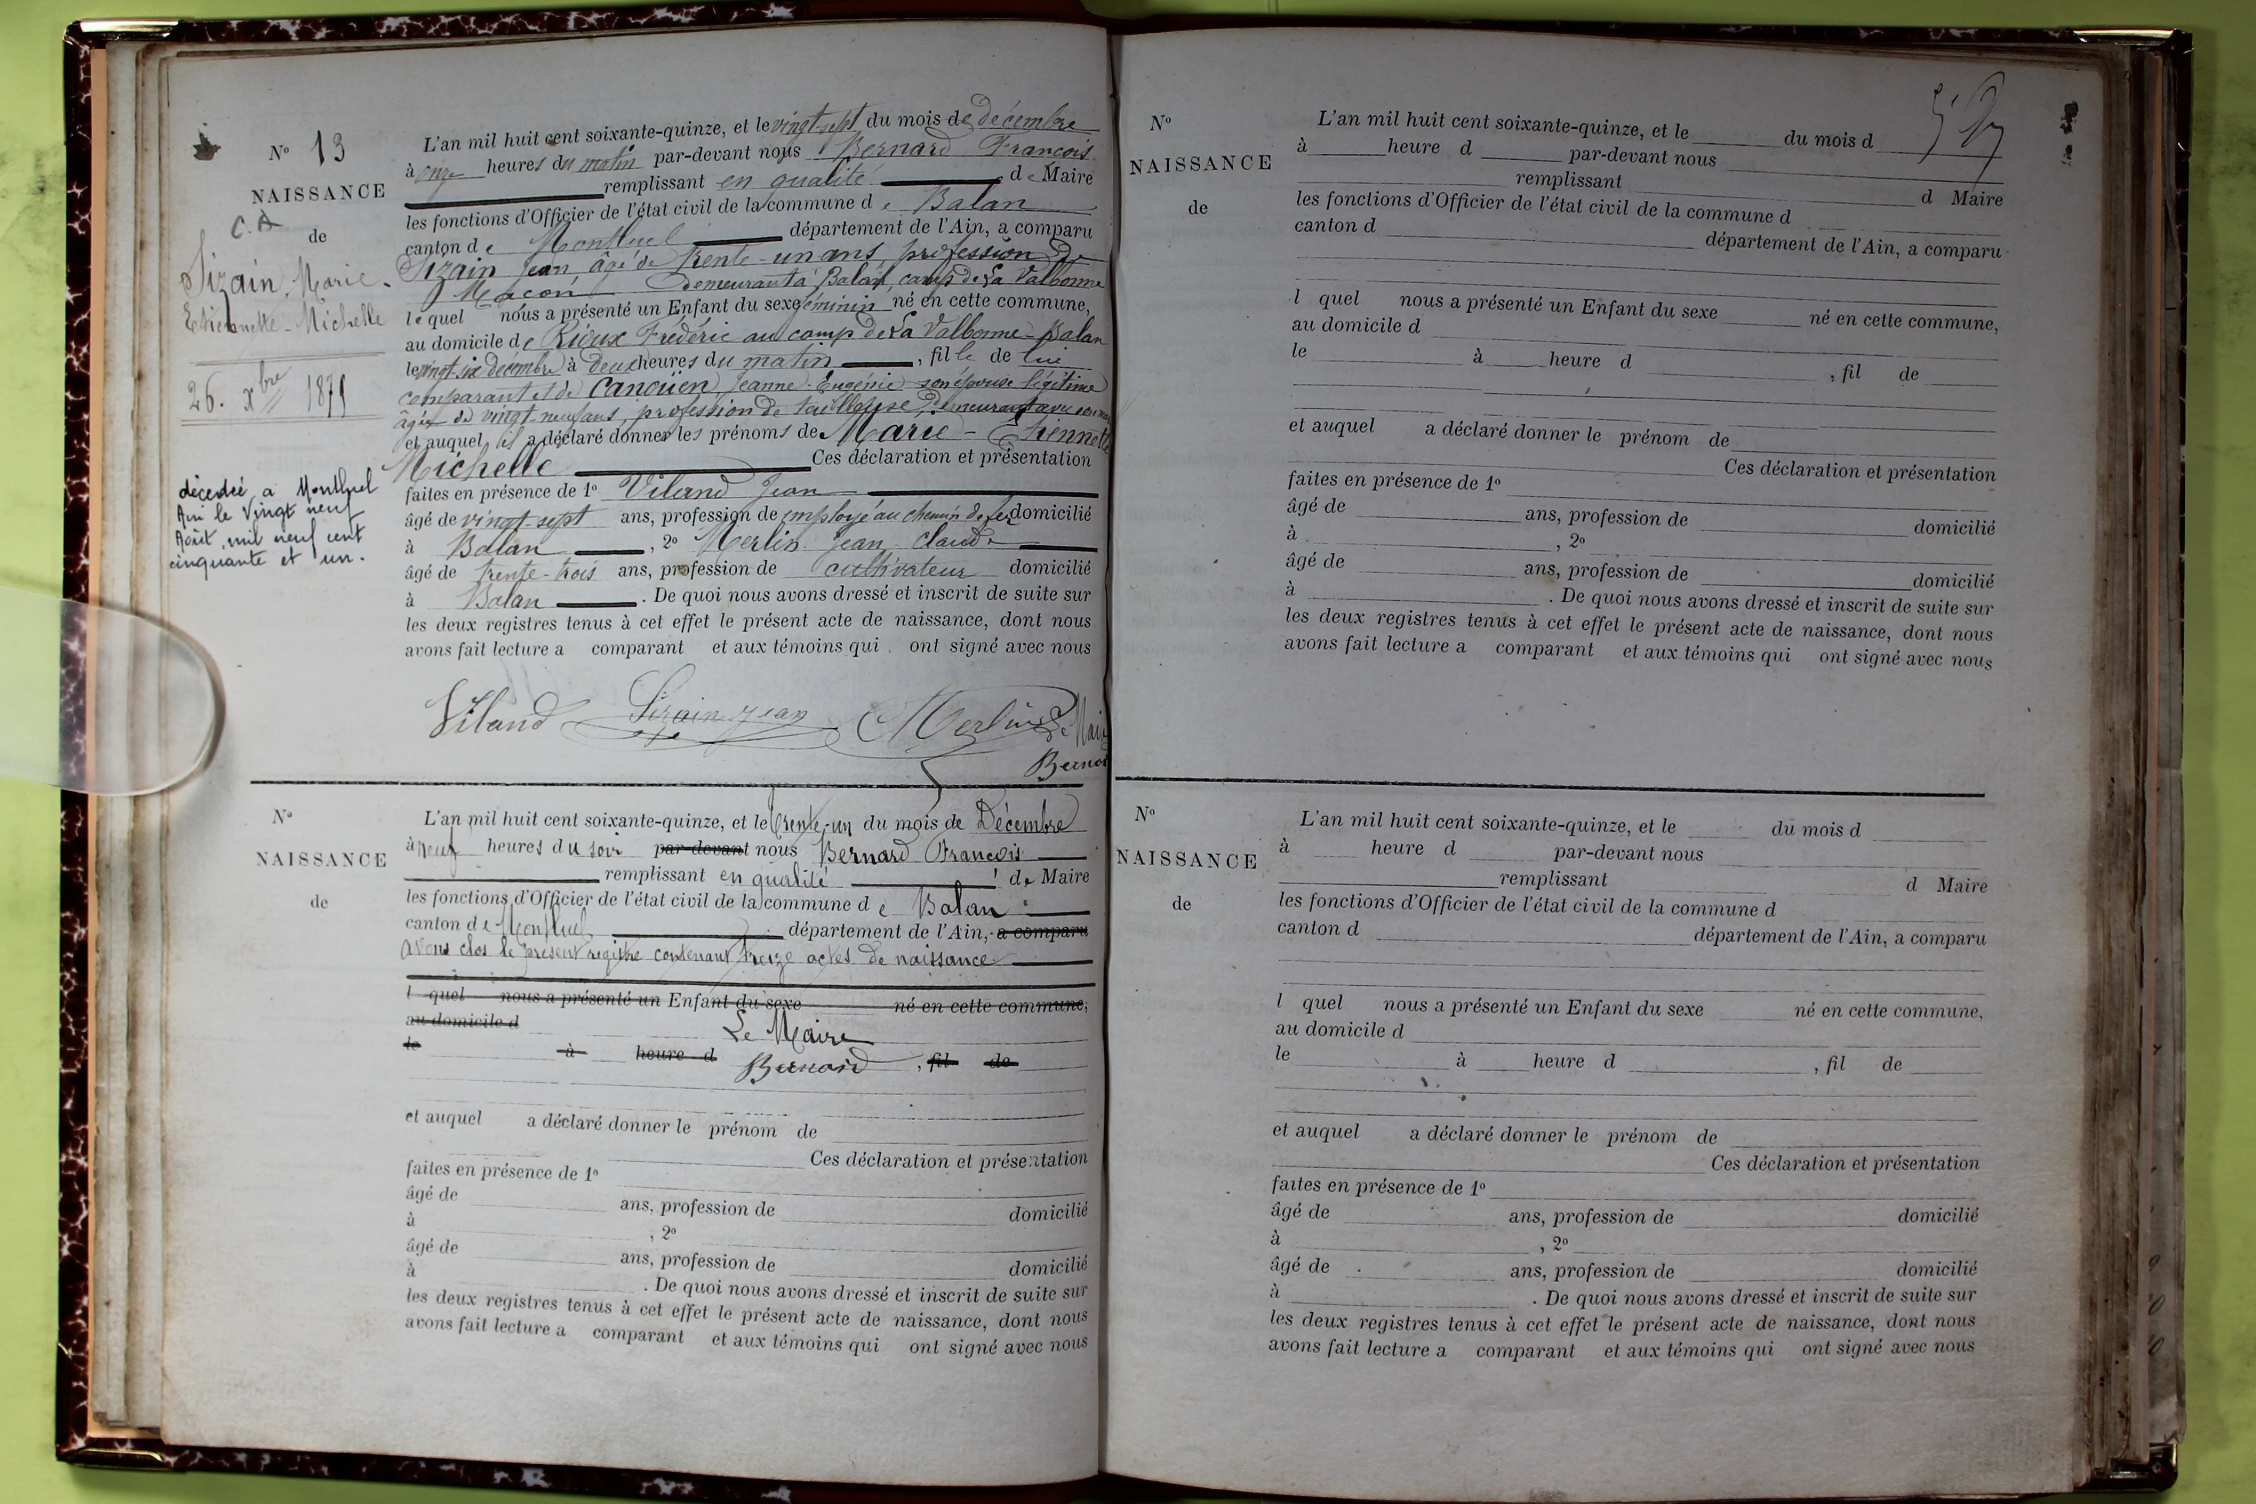 N° 13
NAISSANCE
C. A
de
Sizain, Marie-
Etiennette-Michelle
26. xbre 1875
décédée à Montluel
Ain le Vingt neuf
Août, mil neuf cent
cinquante et un.
L'an mil huit cent soixante-quinze, et le vingt-sept du mois de décembre
à onze heures du matin par-devant nous Bernard François
remplissant en qualité de Maire
les fonctions d'Officier de l'état civil de la commune de Balan
canton de Montluel département de l'Ain, a comparu
Sizain Jean, âgé de trente-un ans, profession de
Maçon demeurant à Balan, camp de La Valbonne
lequel nous a présenté un Enfant du sexe féminin né en cette commune,
au domicile de Rieux Frédéric au camp de La Valbonne-Balan
le vingt six décembre à deux heures du matin, fille de lui
comparant et de Canouen Jeanne-Eugénie son épouse légitime
âgée de vingt-neuf ans, profession de tailleuse, demeurant avec son mari
et auquel il a déclaré donner les prénoms de Marie-Etiennette
Michelle Ces déclaration et présentation
faites en présence de 1° Viland Jean
âgé de vingt-sept ans, profession de employé au chemin de fer domicilié
à Balan, 2° Merlin Jean Claude
âgé de trente-trois ans, profession de cultivateur domicilié
à Balan. De quoi nous avons dressé et inscrit de suite sur
les deux registres tenus à cet effet le présent acte de naissance, dont nous
avons fait lecture a comparant et aux témoins qui ont signé avec nous
Viland Sizain Jean Merlin Le Maire
Bernard
N°
NAISSANCE
de
L'an mil huit cent soixante-quinze, et le trente-un du mois de Décembre
à neuf heures du soir par-devant nous Bernard François
remplissant en qualité de Maire
les fonctions d'Officier de l'état civil de la commune de Balan
canton de Montluel département de l'Ain, a comparu
avons clos le présent registre contenant treize actes de naissance
l quel nous a présenté un Enfant du sexe né en cette commune,
au domicile d
Le Maire
le à heure d , fil de
Bernard
et auquel a déclaré donner le prénom de
Ces déclaration et présentation
faites en présence de 1°
âgé de ans, profession de domicilié
à , 2°
âgé de ans, profession de domicilié
à . De quoi nous avons dressé et inscrit de suite sur
les deux registres tenus à cet effet le présent acte de naissance, dont nous
avons fait lecture a comparant et aux témoins qui ont signé avec nous
N°
NAISSANCE
de
L'an mil huit cent soixante-quinze, et le du mois d
à heure d par-devant nous
remplissant d Maire
les fonctions d'Officier de l'état civil de la commune d
canton d département de l'Ain, a comparu
l quel nous a présenté un Enfant du sexe né en cette commune,
au domicile d
le à heure d , fil de
et auquel a déclaré donner le prénom de
Ces déclaration et présentation
faites en présence de 1°
âgé de ans, profession de domicilié
à , 2°
âgé de ans, profession de domicilié
à . De quoi nous avons dressé et inscrit de suite sur
les deux registres tenus à cet effet le présent acte de naissance, dont nous
avons fait lecture a comparant et aux témoins qui ont signé avec nous
N°
NAISSANCE
de
L'an mil huit cent soixante-quinze, et le du mois d
à heure d par-devant nous
remplissant d Maire
les fonctions d'Officier de l'état civil de la commune d
canton d département de l'Ain, a comparu
l quel nous a présenté un Enfant du sexe né en cette commune,
au domicile d
le à heure d , fil de
et auquel a déclaré donner le prénom de
Ces déclaration et présentation
faites en présence de 1°
âgé de ans, profession de domicilié
à , 2°
âgé de ans, profession de domicilié
à . De quoi nous avons dressé et inscrit de suite sur
les deux registres tenus à cet effet le présent acte de naissance, dont nous
avons fait lecture a comparant et aux témoins qui ont signé avec nous